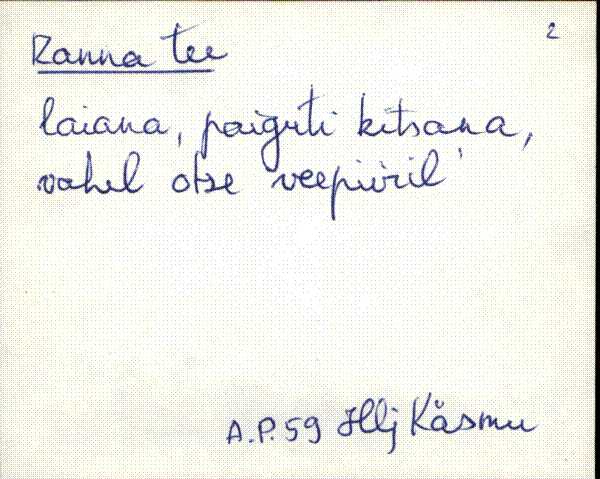 2
Ranna tee
laiana, paiguti kitsana,
vahel otse veepiiril
A.P. 59 Hlj Käsmu